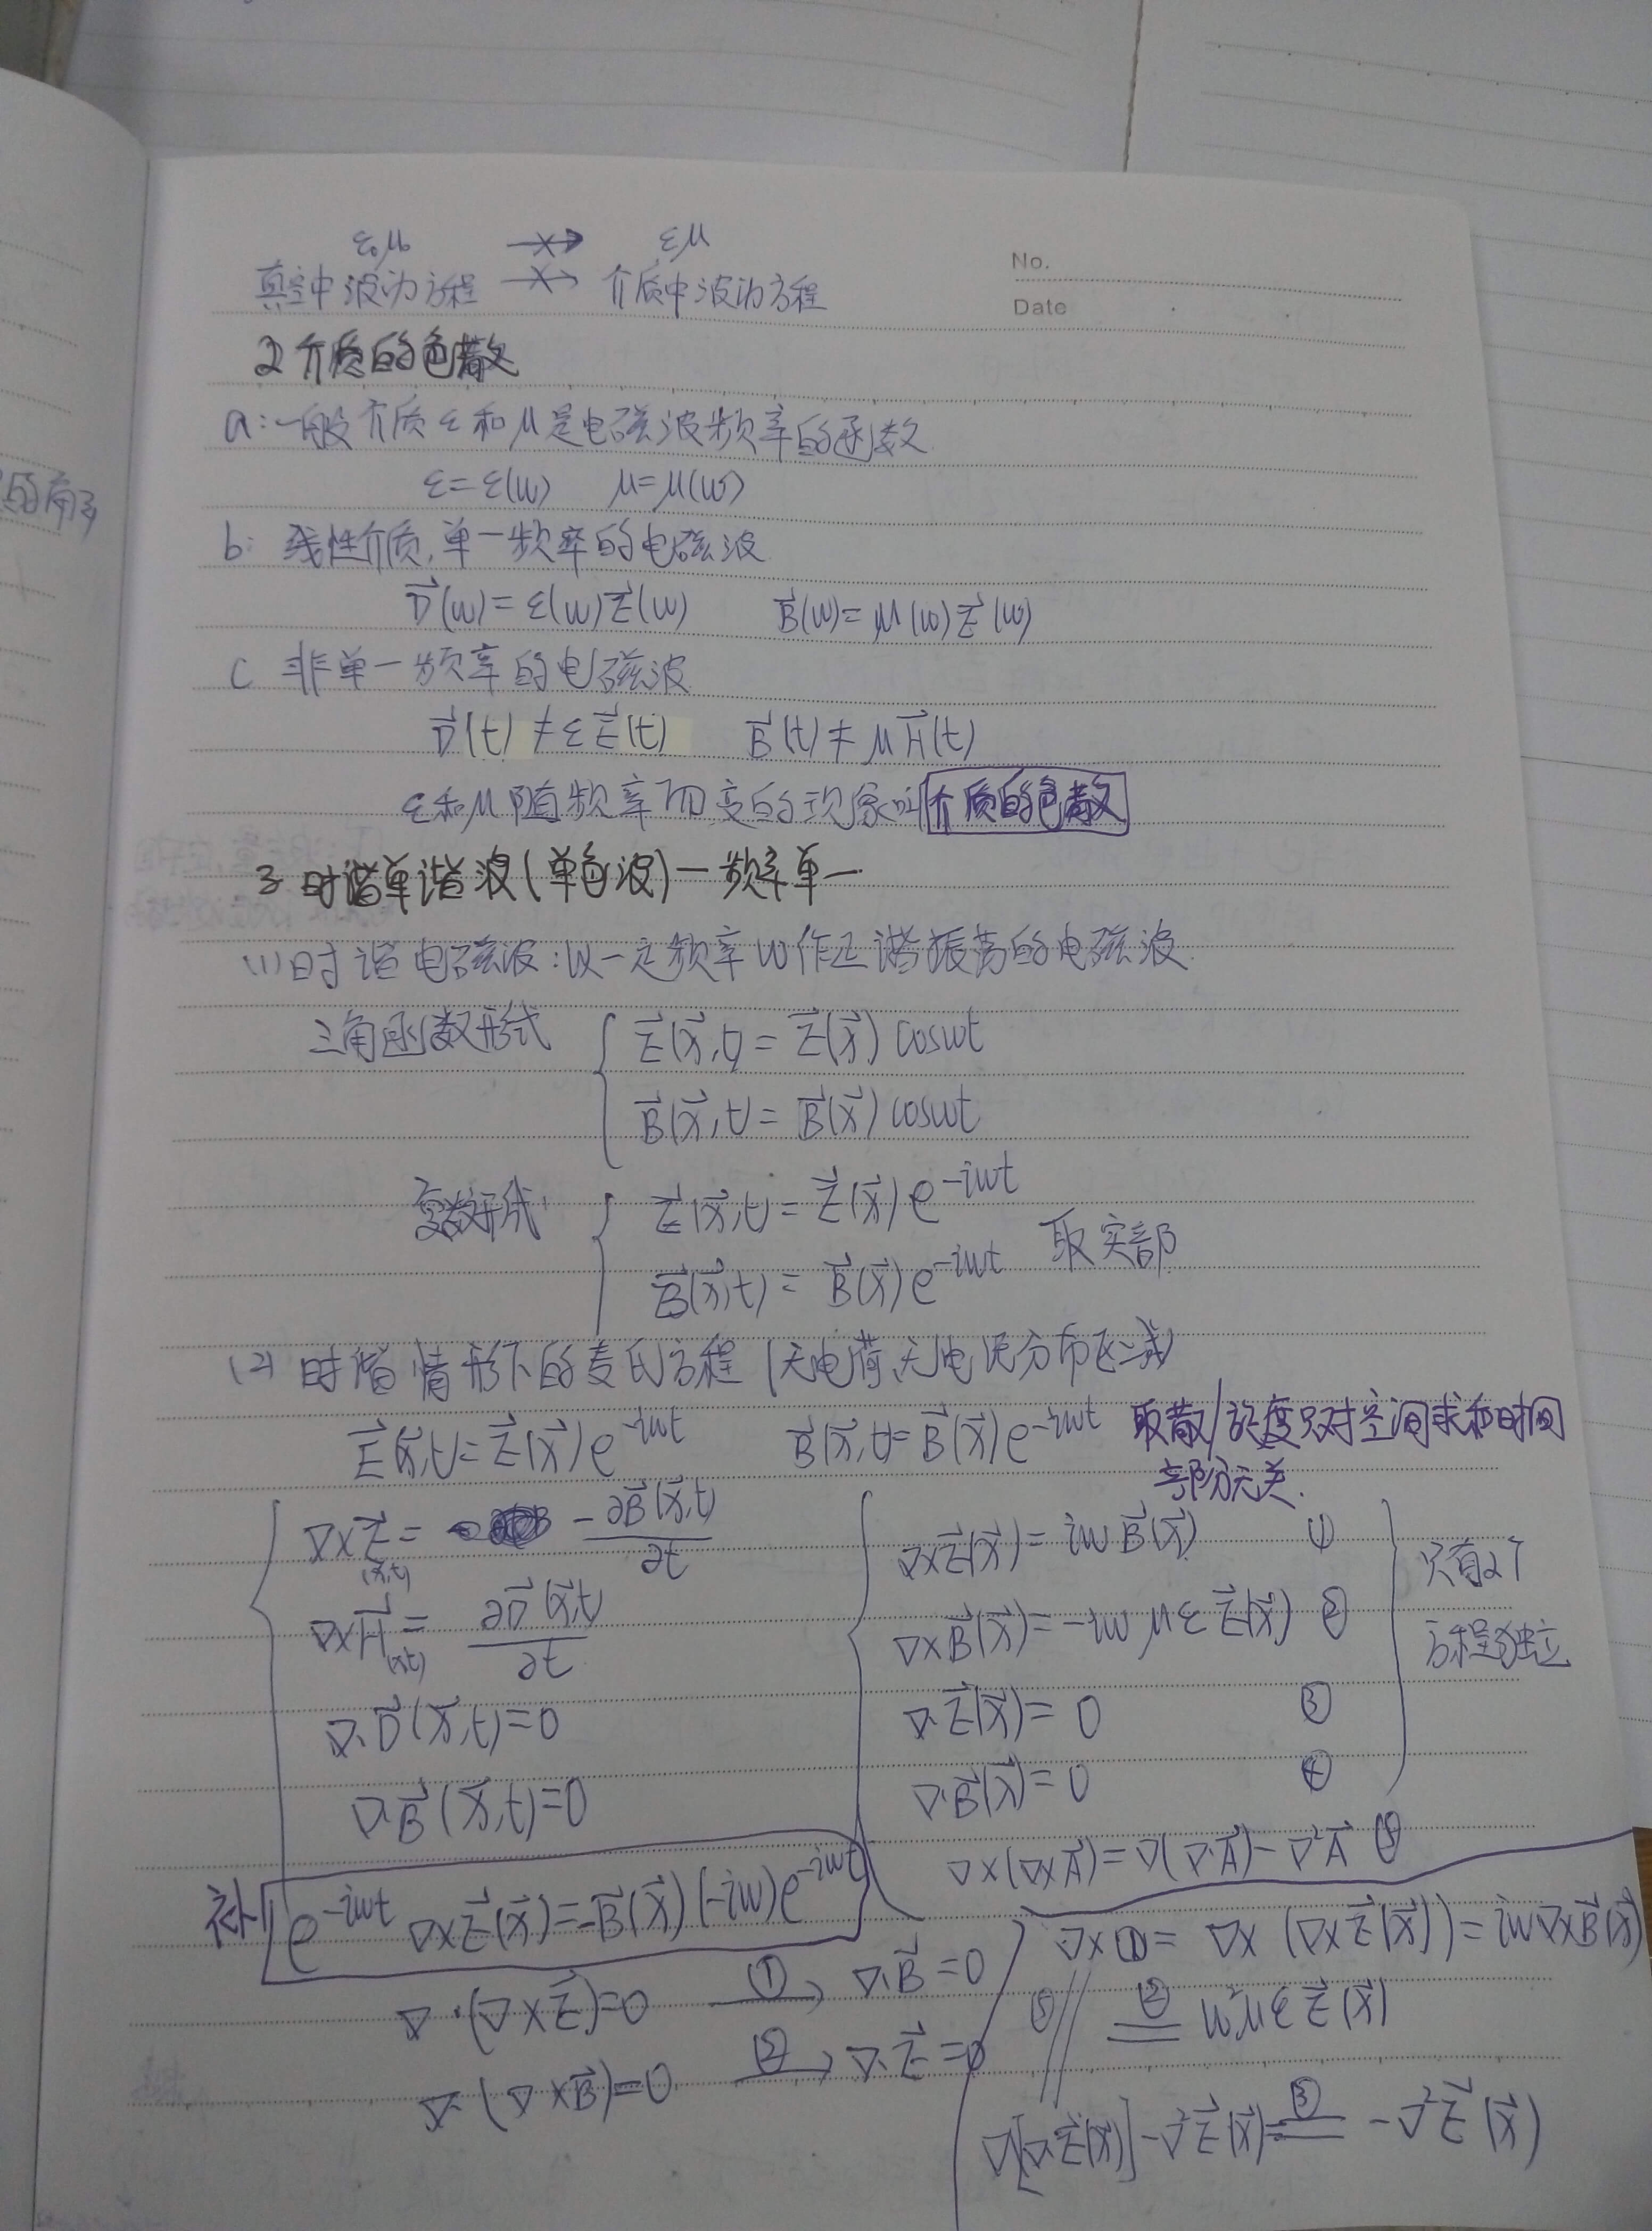 ε₀μ₀ ↛ εμ
No.
真空中波动方程 ↛ 介质中波动方程
Date
2 介质的色散
a:一般介质ε和μ是电磁波频率的函数
ε=ε(ω) μ=μ(ω)
b: 线性介质,单一频率的电磁波
D⃗(ω)=ε(ω)E⃗(ω) B⃗(ω)=μ(ω)E⃗(ω)
C 非单一频率的电磁波
D⃗(t)≠εE⃗(t) B⃗(t)≠μH⃗(t)
ε和μ随频率而变的现象叫介质的色散
3 时谐单谐波(单色波)—频率单一
(1)时谐电磁波:以一定频率ω作正谐振荡的电磁波.
三角函数形式 { E⃗(x⃗,t)=E⃗(x⃗)cosωt
B⃗(x⃗,t)=B⃗(x⃗)cosωt
复数形式 { E⃗(x⃗,t)=E⃗(x⃗)e^{-iωt}
B⃗(x⃗,t)=B⃗(x⃗)e^{-iωt} 取实部
(2) 时谐情形下的麦氏方程(无电荷、无电流分布区域)
E⃗(x⃗,t)=E⃗(x⃗)e^{-iωt} B⃗(x⃗,t)=B⃗(x⃗)e^{-iωt} 取散/旋度只对空间求和时间
部分无关.
∇×E⃗(x,t)= -∂B⃗(x⃗,t)/∂t
∇×H⃗(x,t)= ∂D⃗(x⃗,t)/∂t
∇·D⃗(x⃗,t)=0
∇·B⃗(x⃗,t)=0
∇×E⃗(x⃗)=iωB⃗(x⃗) ①
∇×B⃗(x⃗)=-iωμεE⃗(x⃗) ②
∇·E⃗(x⃗)=0 ③
∇·B⃗(x⃗)=0 ④
只有2个
方程独立
∇×(∇×A⃗)=∇(∇·A⃗)-∇²A⃗ ⑤
补 e^{-iωt}∇×E⃗(x⃗)=-B⃗(x⃗)(-iω)e^{-iωt}
∇·(∇×E⃗)=0 —①→ ∇·B⃗=0
∇·(∇×B⃗)=0 —②→ ∇·E⃗=0
∇×①= ∇×(∇×E⃗(x⃗))=iω∇×B⃗(x⃗)
⑤ ∥ ②= ω²μεE⃗(x⃗)
∇[∇·E⃗(x⃗)]-∇²E⃗(x⃗) =③= -∇²E⃗(x⃗)